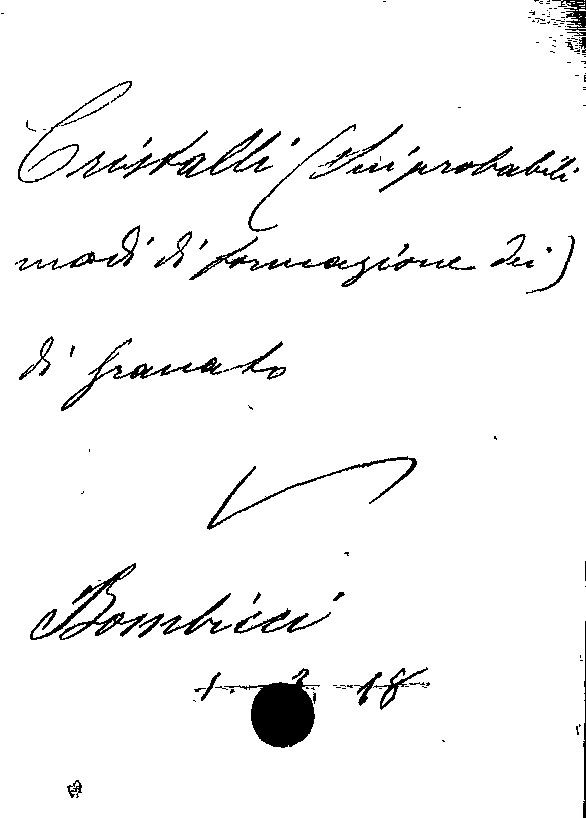 Cristalli (Sui probabili
modi di formazione dei)
di Granato
Bombicci
1. 2 18